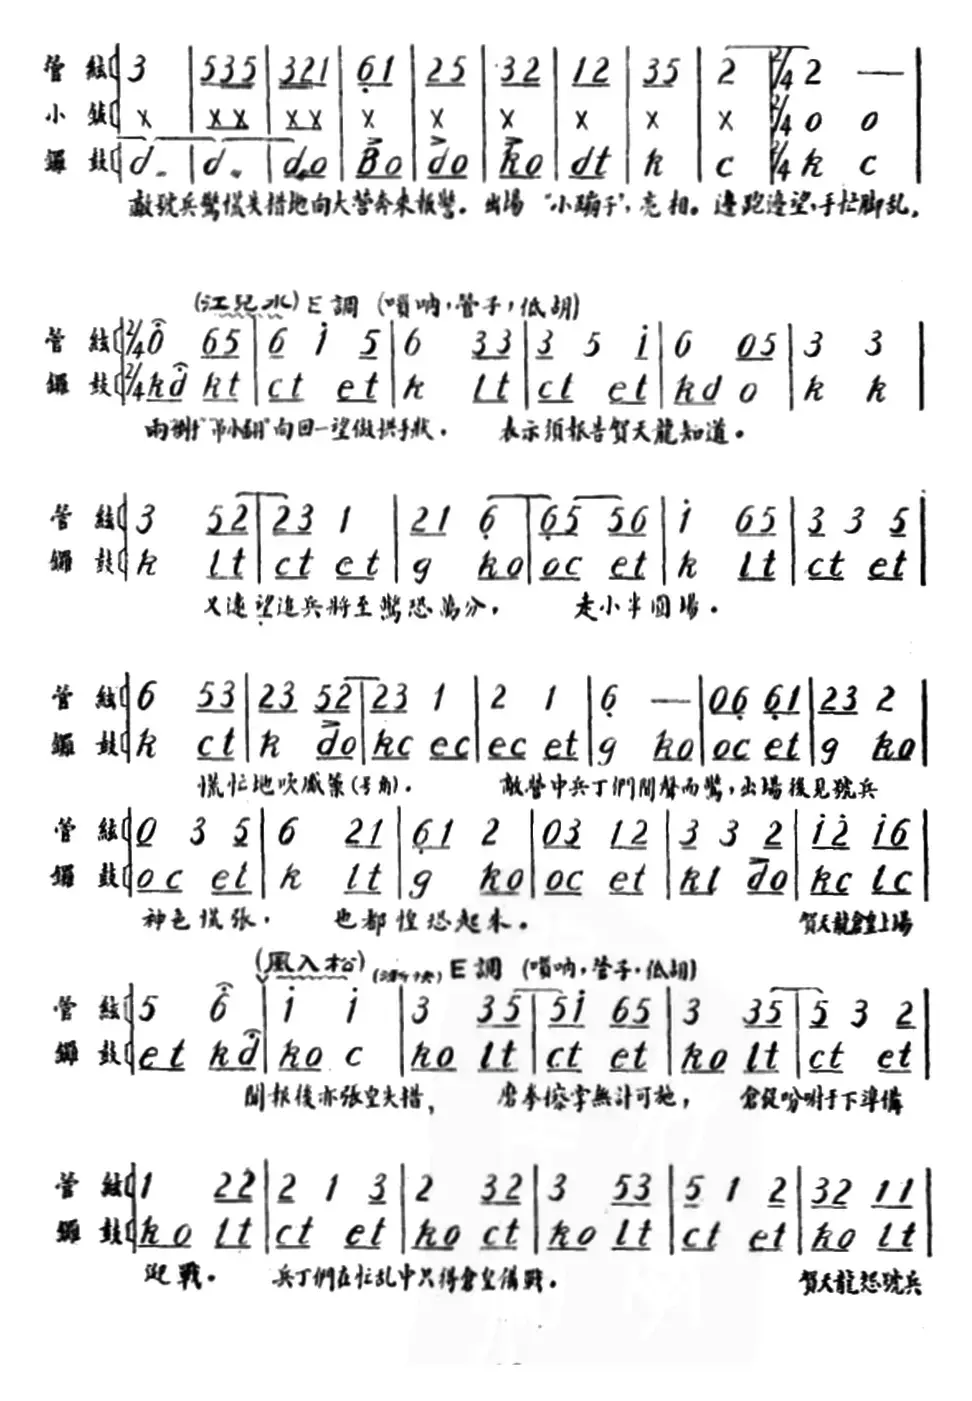 管絃 3 | 535 | 321 | 61 | 25 | 32 | 12 | 35 | 2 | 2/4 2 —
小鈸 x | x x | x x | x | x | x | x | x | x | 2/4 0 0
鑼鼓 d. | d. | do | Bo | do | ko | dt | k | c | 2/4 k c
敵號兵驚慌失措地向大營奔來報警。出場"小蹦子",亮相。邊跑邊望,手忙脚乱,
(江兒水) E調 (嗩吶,管子,低胡)
管絃 2/4 0 65 | 6 i 5 | 6 33 | 3 5 i | 6 05 | 3 3
鑼鼓 2/4 kd kt | ct et | k lt | ct et | kd o | k k
向回一望做拱手狀. 表示須報告賀天龍知道。
管絃 3 52 | 23 1 | 21 6 | 65 56 | i 65 | 3 3 5
鑼鼓 k lt | ct et | g ko | oc et | k lt | ct et
又遠望追兵將至驚恐萬分, 走小半圓場.
管絃 6 53 | 23 52 | 23 1 | 2 1 | 6 — | 06 61 | 23 2
鑼鼓 k ct | k do | kc ec | ec et | g ko | oc et | g ko
慌忙地吹(号角). 敵營中兵丁們聞聲而驚,出場後見號兵
管絃 0 3 5 | 6 21 | 61 2 | 03 12 | 3 3 2 | i2 i6
鑼鼓 oc et | k lt | g ko | oc et | kl do | kc lc
神色慌張, 也都惶恐起來. 賀天龍倉皇上場
(風入松) E調 (嗩吶,管子.低胡)
管絃 5 6 | i i | 3 35 | 5i 65 | 3 35 | 5 3 2
鑼鼓 et kd | ko c | ko lt | ct et | ko lt | ct et
聞报後亦張皇失措, 磨拳擦掌無計可施, 倉促吩咐手下準備
管絃 1 22 | 2 1 3 | 2 32 | 3 53 | 5 1 2 | 32 11
鑼鼓 ko lt | ct et | ko ct | ko lt | ct et | ko lt
迎戰. 兵丁們在忙乱中只得倉皇備戰. 賀天龍怒號兵